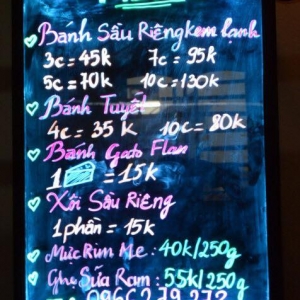 Bánh Sầu Riêng kem lạnh
3c = 45k 7c = 95k
5c = 70k 10c = 130k
Bánh Tuyết
4c = 35 k 10c = 80k
Bánh Gato Flan
1 = 15k
Xôi Sầu Riêng
1 phần = 15k
Mực Rim Me : 40k/250g
Ghẹ Sữa Ram : 55k/250g